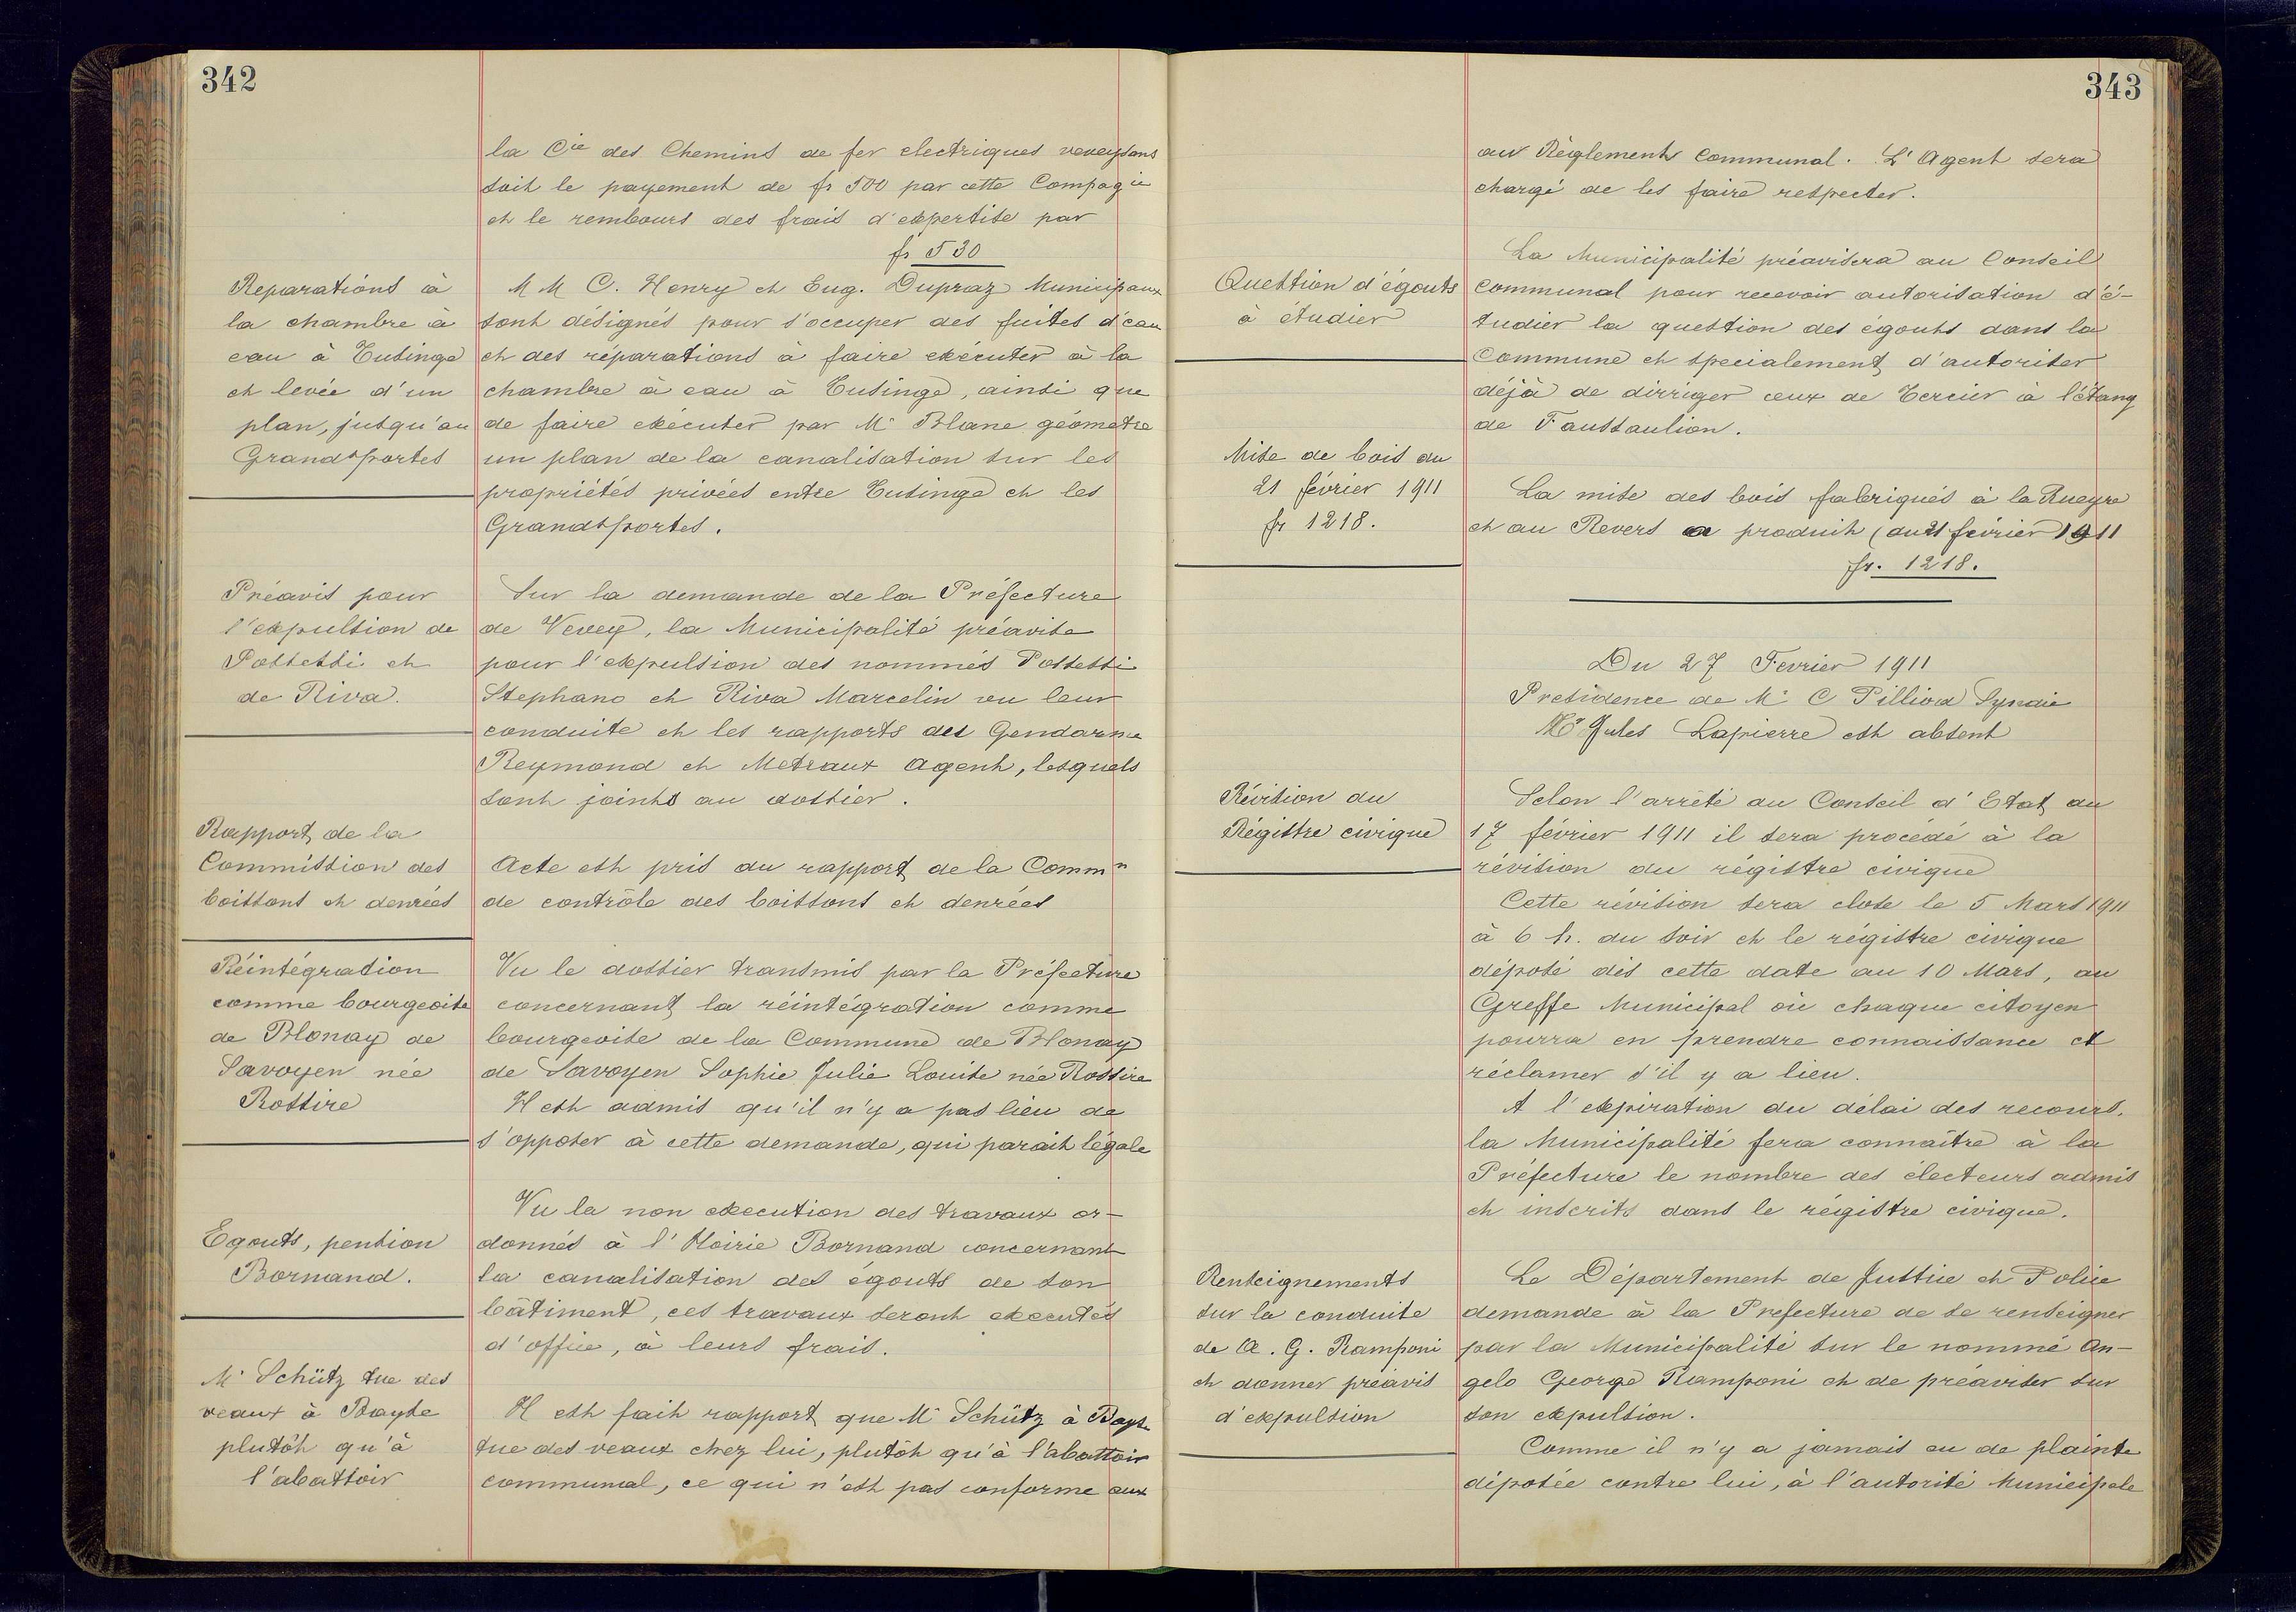 342
la Cie des Chemins de fer electriques veveysans
soit le payement de fr 500 par cette Compagie
et le rembours des frais d'expertise par
fr 530
Reparations à
la chambre à
eau à Tusinge
et levée d'un
plan, jusqu'au
Grandsportes
M M C. Henry et Eug. Dupraz Municipaux
sont désignés pour s'occuper des fuites d'eau
et des réparations à faire exécuter à la
chambre à eau à Tusinge, ainsi que
de faire exécuter par Mr Blanc géomètre
un plan de la canalisation sur les
propriétés privées entre Tusinge et les
Grandsportes.
Préavis pour
l'expulsion de
Possessi et
de Riva.
Sur la demande de la Préfecture
de Vevey, la Municipalité préavise
pour l'expulsion des nommés Possessi
Stephano et Riva Marcelin vu leur
conduite et les rapports des Gendarme
Reymond et Metraux Agent, lesquels
sont joints au dossier.
Rapport de la
Commission des
boissons et denrées
Acte est pris du rapport de la Commn
de contrôle des boissons et denrées
Réintégration
comme bourgeoise
de Blonay de
Savoyen née
Rossire
Vu le dossier transmis par la Préfecture
concernant la réintégration comme
bourgeoise de la Commune de Blonay
de Savoyen Sophie Julie Louise née Rossire
Il est admis qu'il n'y a pas lieu de
s'opposer à cette demande, qui parait légale
Egouts, pension
Bornand.
Vu la non execution des travaux or-
donnés à l'Hoirie Bornand concernant
la canalisation des égouts de son
bâtiment, ces travaux seront executés
d'office, à leurs frais.
Mr Schütz tue des
veaux à Bayse
plutôt qu'à
l'abattoir
Il est fait rapport que Mr Schütz à Bayse
tue des veaux chez lui, plutôt qu'à l'abattoir
communal, ce qui n'est pas conforme aux
343
aux Règlements communal. L'Agent sera
chargé de les faire respecter.
Question d'égouts
à étudier
La Municipalité préavisera au Conseil
Communal pour recevoir autorisation d'é-
tudier la question des égouts dans la
Commune et specialement d'autoriser
déjà de dirriger ceux de Tercier à l'étang
de Faussaulion.
Mise de bois du
21 février 1911
fr 1218.
La mise des bois fabriqués à la Rueyre
et au Revers a produit (au 21 février 1911
fr. 1218.
Du 27 Fevrier 1911
Presidence de Mr C Pilliod Syndic
Mr Jules Lapierre est absent
Révision du
Régistre civique
Selon l'arrêté du Conseil d'Etat du
17 février 1911 il sera procédé à la
révision du régistre civique
Cette révision sera close le 5 Mars 1911
à 6 h. du soir et le régistre civique
déposé dès cette date au 10 Mars, au
Greffe Municipal où chaque citoyen
pourra en prendre connaissance et
réclamer s'il y a lieu.
A l'expiration du délai des recours.
la Municipalité fera connaître à la
Préfecture le nombre des électeurs admis
et inscrits dans le régistre civique.
Renseignements
sur la conduite
de A. G. Ramponi
et donner préavis
d'expulsion
Le Département de Justice et Police
demande à la Prefecture de se renseigner
par la Municipalité sur le nommé An-
gelo George Ramponi et de préaviser sur
son expulsion.
Comme il n'y a jamais eu de plainte
déposée contre lui, à l'autorité Municipale